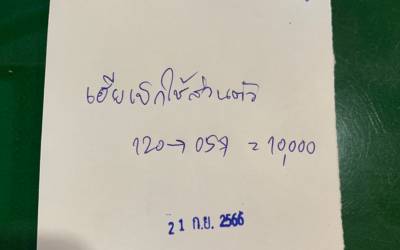 เฮียเบิกใช้ส่วนตัว
120→057 = 10,000
21 ก.ย. 2566